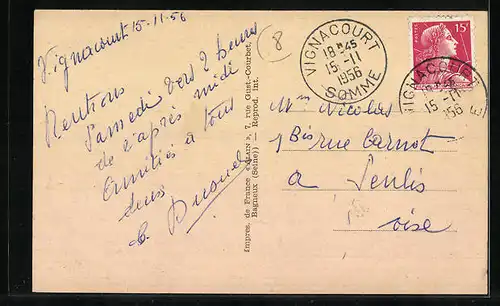 Vignacourt 15-11-56
Rentrons
Samedi vers 2 heures
de l'après midi
Amitiés à tous
deux
Impres. de France «OMAIN», 7, rue Gust.-Courbet,
Bagneux (Seine) — Reprod. int.
8
VIGNACOURT
18H45
15-11
1956
SOMME
POSTES
15F
VIGNACOURT
15-11
1956
Mme Nicolas
1 Bis rue Carnot
à Senlis
oise